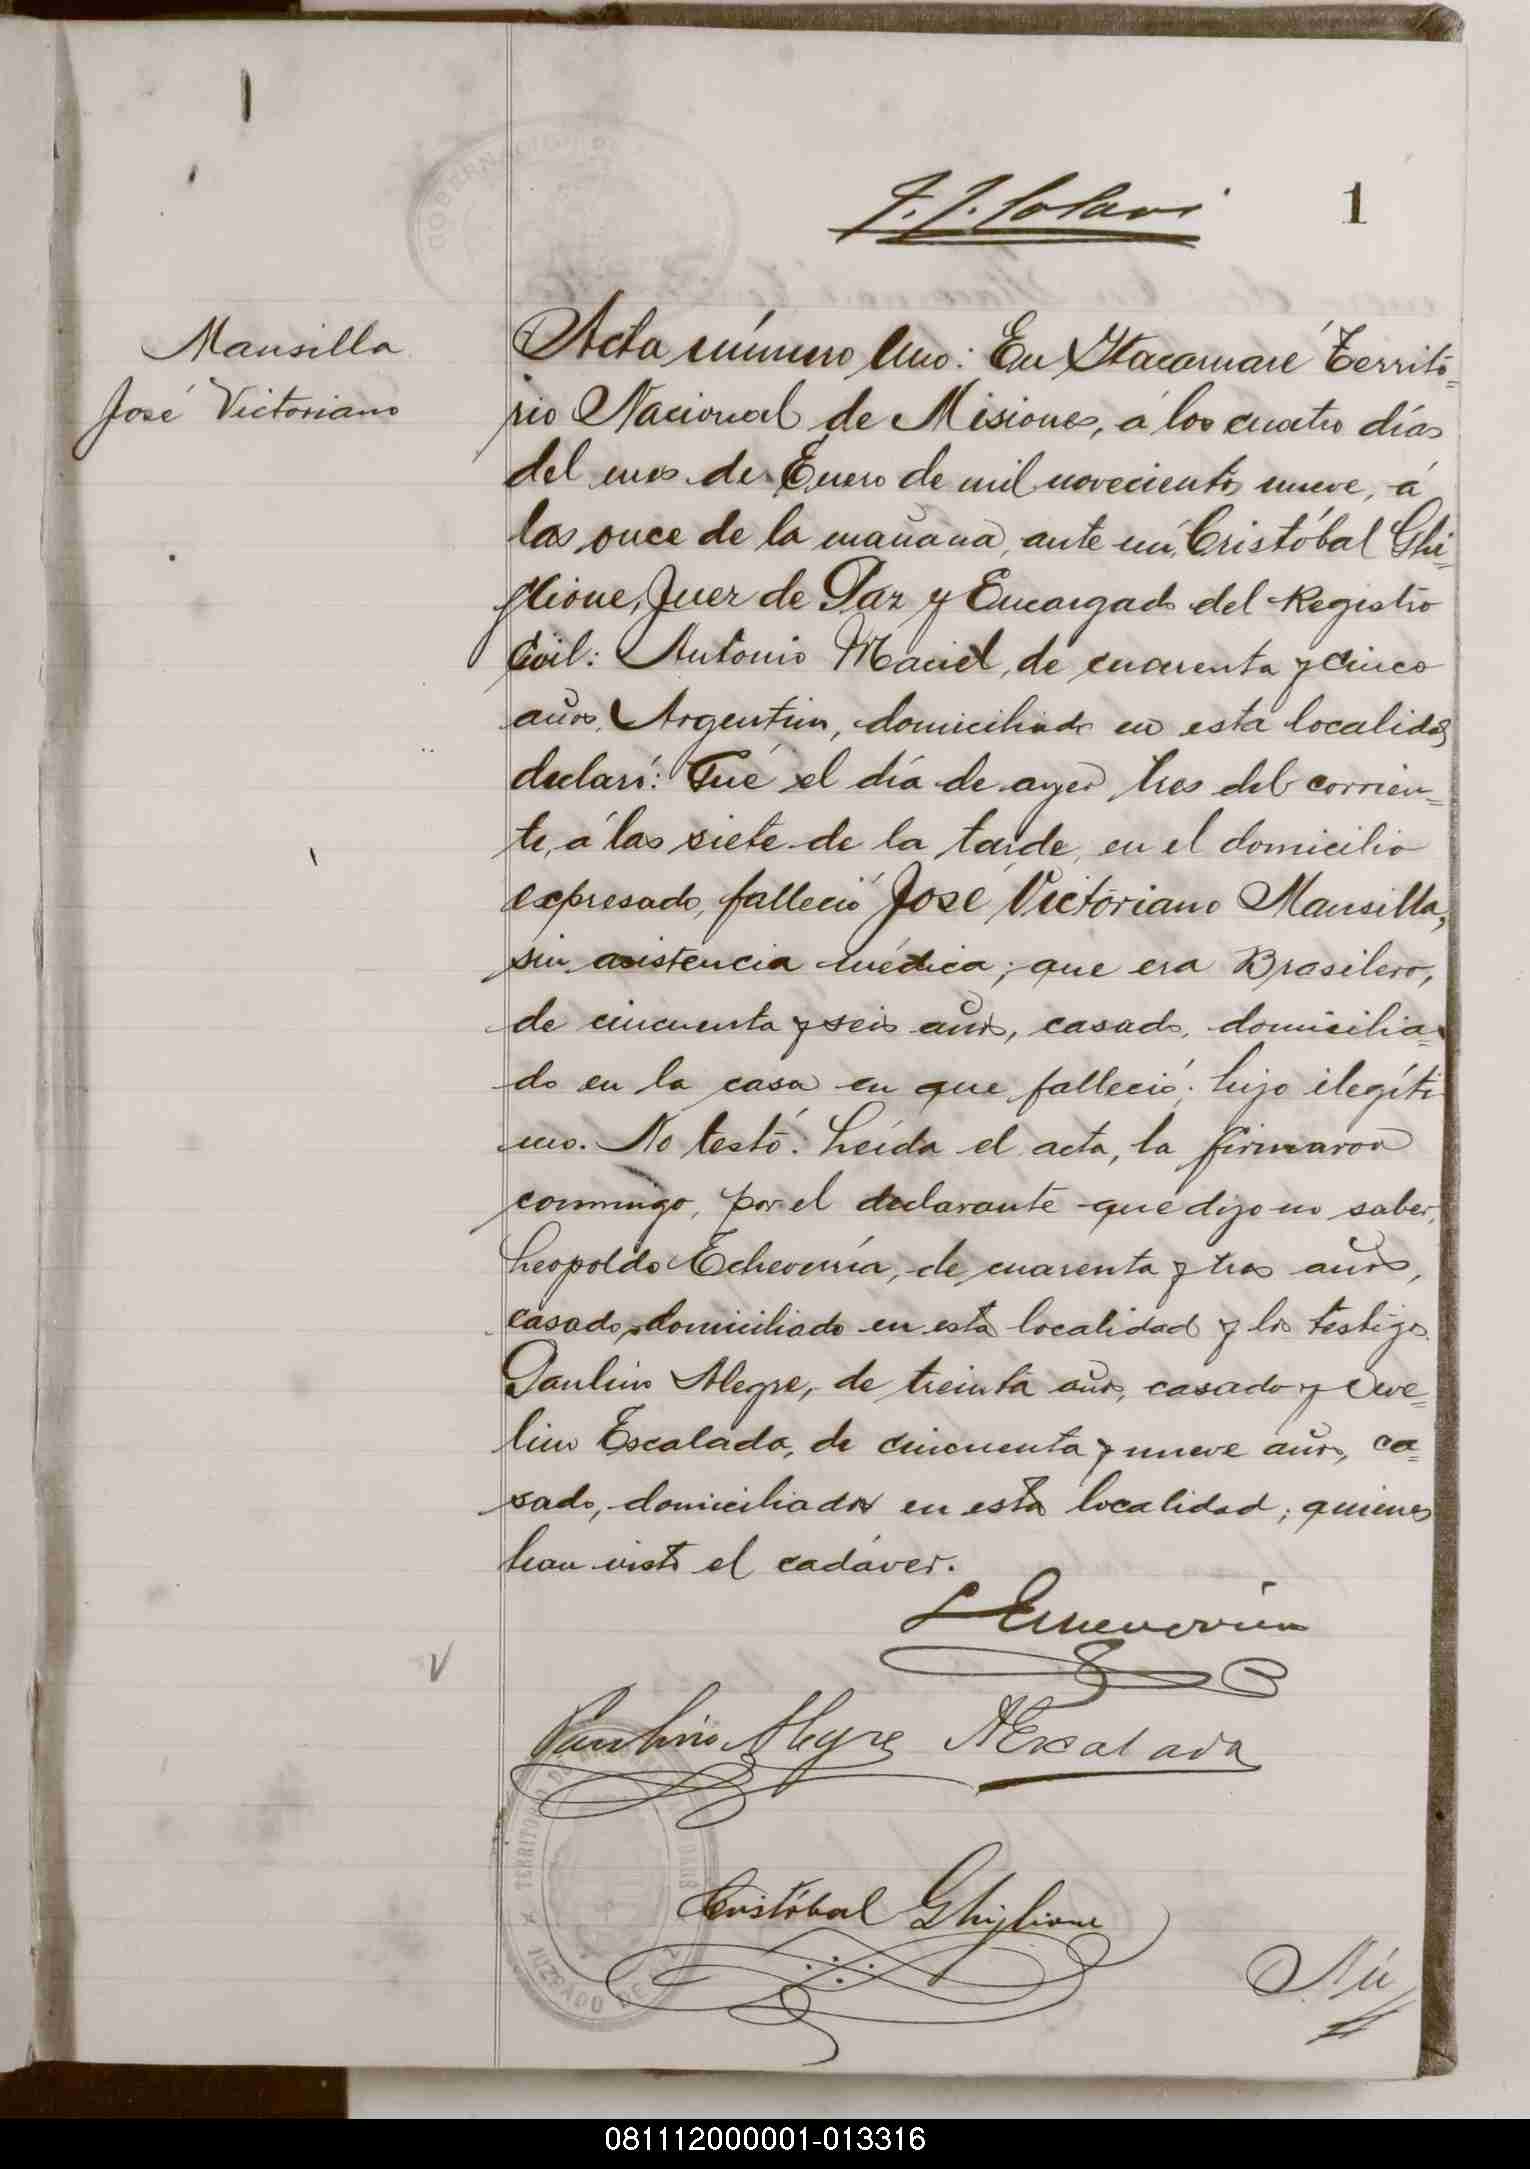 1
Mansilla
José Victoriano
Acta número Uno: En Itacaruaré Territo=
rio Nacional de Misiones, á los cuatro días
del mes de Enero de mil novecientos nueve, á
las once de la mañana, ante mí, Cristóbal Ghi=
glione, Juez de Paz y Encargado del Registro
Civil: Antonio Maciel, de cuarenta y cinco
años, Argentino, domiciliado en esta localidad
declaró: Qué el día de ayer tres del corrien=
te, á las siete de la tarde, en el domicilio
expresado, falleció José Victoriano Mansilla,
sin asistencia médica; que era Brasilero,
de cincuenta y seis años, casado, domicilia=
do en la casa en que falleció; hijo ilegíti
mo. No testó. Leída el acta, la firmaron
conmigo, por el declarante que dijo no saber,
Leopoldo Echeverría, de cuarenta y tres años,
casado, domiciliado en esta localidad y los testigos
Paulino Alegre, de treinta años, casado y
lino Escalada, de cincuenta y nueve años, ca=
sado, domiciliados en esta localidad; quienes
han visto el cadáver.
L Echeverría
Paulino Alegre A Escalada
Cristóbal Ghiglione
TERRITORIO DE
JUZGADO DE PAZ
GOBERNACION
081112000001-013316